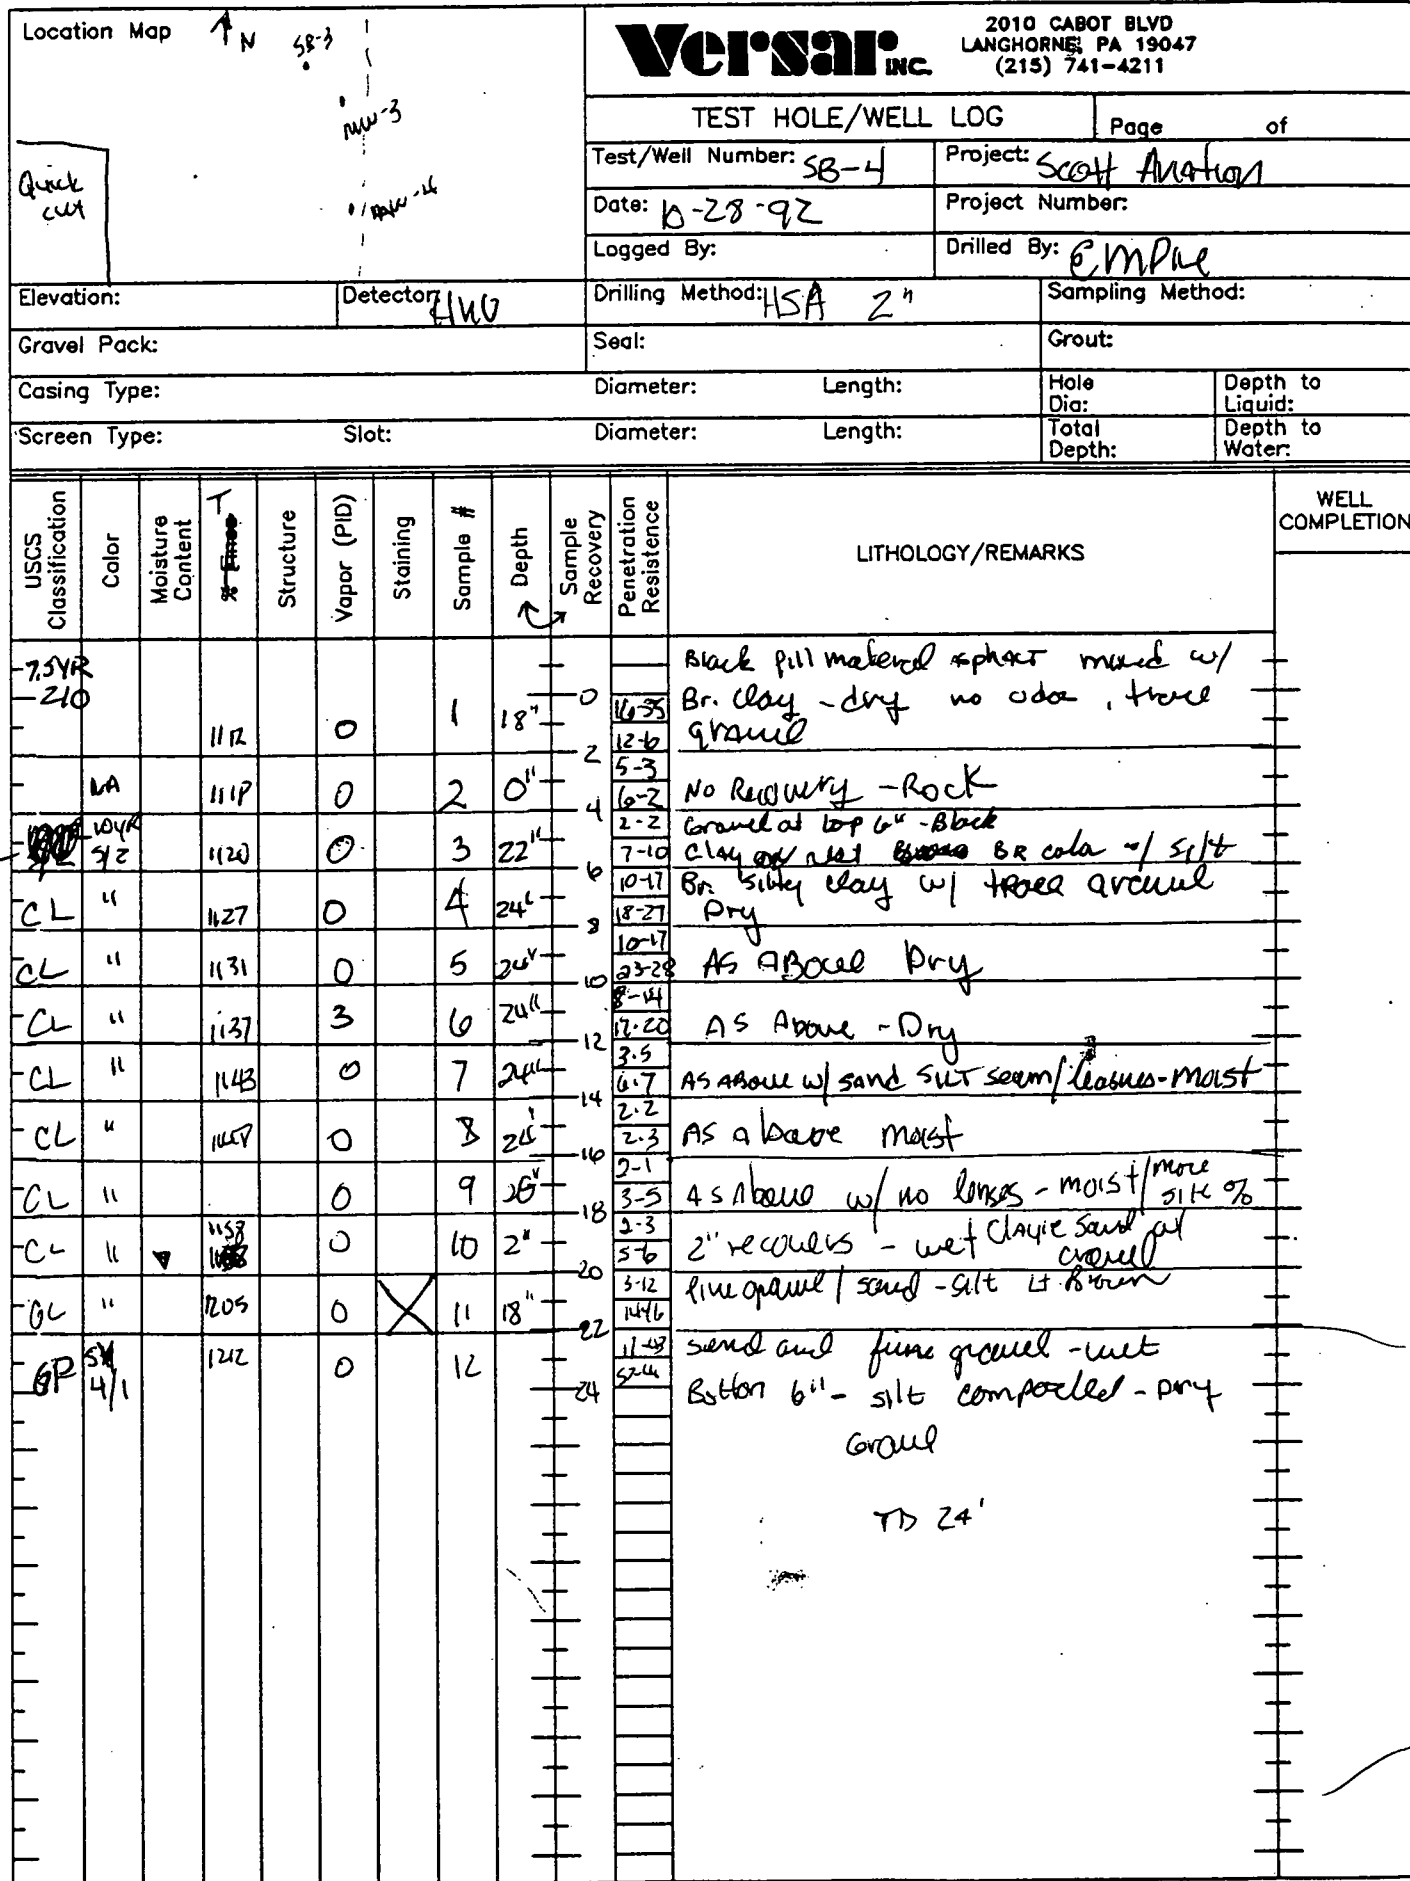 Location Map
N
SB-3
MW-3
MW-4
Quick
cut
Versar INC.
2010 CABOT BLVD
LANGHORNE, PA 19047
(215) 741-4211
TEST HOLE/WELL LOG
Page of
Test/Well Number: SB-4
Project: Scott Aviation
Date: 10-28-92
Project Number:
Logged By:
Drilled By: Empire
Elevation:
Detector: HNU
Drilling Method: HSA 2"
Sampling Method:
Gravel Pack:
Seal:
Grout:
Casing Type:
Diameter: Length:
Hole Dia:
Depth to Liquid:
Screen Type: Slot:
Diameter: Length:
Total Depth:
Depth to Water:
USCS Classification
Color
Moisture Content
T
% Fines
Structure
Vapor (PID)
Staining
Sample #
Depth
Sample Recovery
Penetration Resistence
LITHOLOGY/REMARKS
WELL COMPLETION
7.5YR
210
1112 0 1 18" 0 2 12-6
Black fill material asphalt mixed w/
Br. clay - dry no odor, trace
gravel
NA 0 2 0" 4 5-3 6-2
No Recovery - Rock
10YR
5/2 1120 0 3 22" 6 2-2 7-10
Gravel at top 6" - Black
Clay rest BR color w/ silt
CL " 1127 0 4 24" 8 10-17 18-27
Br. silty clay w/ trace gravel
Dry
CL " 1131 0 5 24" 10 10-17 23-28
AS ABOVE Dry
CL " 1137 3 6 24" 12 8-14 17-20
AS Above - Dry
CL " 1143 0 7 24" 14 3-5 6-7
AS ABOVE w/ sand SILT seam/leasnes - MOIST
CL " 0 8 24" 16 2-2 2-3
AS above moist
CL " 0 9 18 2-1 3-5
AS Above w/ no lenses - moist/more
silt %
CL " 1158 0 10 2" 20 2-3 5-6
2" recovers - wet Clayie Sand w/
gravel
" 1205 0 11 18" 22 3-12
fine gravel / sand - silt Lt Brown
GP 5Y
4/1 1212 0 12 24
sand and fine gravel - wet
Botton 6" - silt compacted - Dry
Gravel
TD 24'